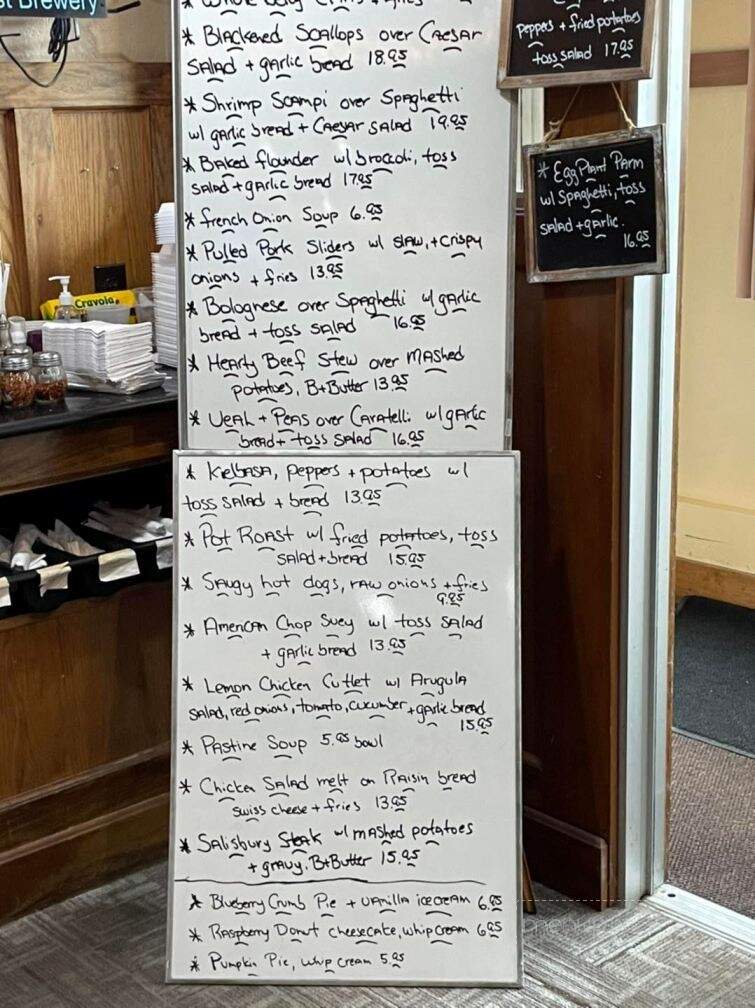 st Brewery
* Whole Belly Clams + fries
* Blackened Scallops over Caesar
Salad + garlic bread 18.95
* Shrimp Scampi over Spaghetti
w/ garlic bread + Caesar Salad 19.95
* Baked flounder w/ broccoli, toss
salad + garlic bread 17.95
* french Onion Soup 6.95
* Pulled Pork Sliders w/ slaw, + crispy
onions + fries 13.95
* Bolognese over Spaghetti w/ garlic
bread + toss salad 16.95
* Hearty Beef Stew over mashed
potatoes, B+Butter 13.95
* Veal + Peas over Cavatelli w/ garlic
bread + toss salad 16.95
* Kielbasa, peppers + potatoes w/
toss salad + bread 13.95
* Pot Roast w/ fried potatoes, toss
salad + bread 15.95
* Saugy hot dogs, raw onions + fries
9.95
* American Chop Suey w/ toss salad
+ garlic bread 13.95
* Lemon Chicken Cutlet w/ Arugula
salad, red onions, tomato, cucumber + garlic bread
15.95
* Pastine Soup 5.95 bowl
* Chicken Salad melt on Raisin bread
swiss cheese + fries 13.95
* Salisbury Steak w/ mashed potatoes
+ gravy, B+Butter 15.95
* Blueberry Crumb Pie + vanilla ice cream 6.95
* Raspberry Donut cheesecake, whip cream 6.95
* Pumpkin Pie, whip cream 5.95
peppers + fried portatoes
toss salad 17.95
* Egg Plant Parm
w/ Spaghetti, toss
salad + garlic.
16.95
Crayola